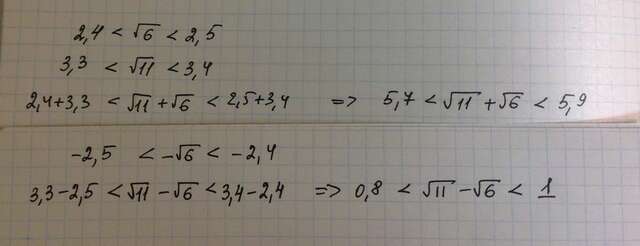 2,4 < √6 < 2,5
3,3 < √11 < 3,4
2,4+3,3 < √11 + √6 < 2,5+3,4 => 5,7 < √11 + √6 < 5,9
-2,5 < -√6 < -2,4
3,3-2,5 < √11 - √6 < 3,4-2,4 => 0,8 < √11 - √6 < 1